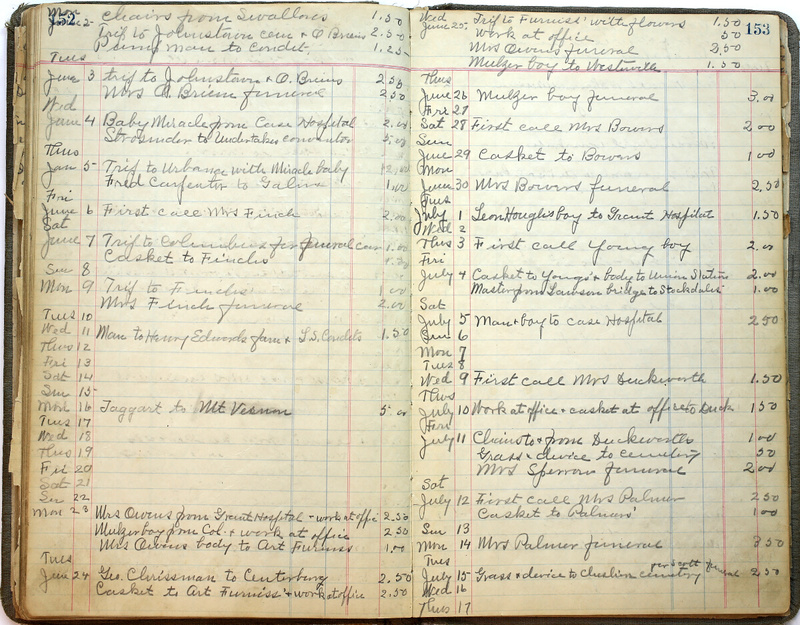 152
Mon
June 2 Chairs from Swallows 1.50
Trip to Johnstown cem & O Briens 2.50
Penny man to Condit 1.25
Tues
June 3 trip to Johnstown & O. Briens 2.50
Mrs O Brien funeral 2.50
Wed
June 4 Baby Miracle from Case Hospital 2.00
Strosnider to Undertakers convention 5.00
Thus
Jan 5 Trip to Urbana with Miracle baby
Fred Carpenter to Galena 1.00
Fri
June 6 First call Mrs Finch 2.00
Sat
June 7 Trip to Columbus for funeral car 1.00
Casket to Finchs
Sun 8
Mon 9 Trip to Finchs 1.00
Mrs Finch funeral 2.00
Tues 10
Wed 11 Man to Henry Edwards farm & S.S. Condits 1.50
Thus 12
Fri 13
Sat 14
Sun 15
Mon 16 Taggart to Mt Vernon 5.00
Tues 17
Wed 18
Thus 19
Fri 20
Sat 21
Sun 22
Mon 23 Mrs Owens from Grant Hospital + work at offic 2.50
Mulzer boy from Col. + work at office 2.50
Mrs Owens body to Art Furniss 1.00
Tues
June 24 Geo. Chrissman to Centerburg 2.50
Casket to Art Furniss' + work at office 2.50
153
Wed
June 25 Trip to Furniss' with flowers 1.50
work at office 50
Mrs Owens funeral 2.50
Mulzer boy to Westerville 1.50
Thus
June 26 Mulzer boy funeral 3.00
Fri 27
Sat 28 First call Mrs Bowers 2.00
Sun
June 29 Casket to Bowers 1.00
Mon
June 30 Mrs Bowers funeral 2.50
Tues
July 1 Leon Houghs boy to Grant Hospital 1.50
Wed 2
Thus 3 First call Young boy 2.00
Fri
July 4 Casket to Youngs + body to Union Station 2.00
Master from Lawson bridge to Stockdales 1.00
Sat
July 5 Man + boy to case Hospital 2.50
Sun 6
Mon 7
Tues 8
Wed 9 First call Mrs Duckworth 1.50
Thus
July 10 Work at office + casket at office to Duck 1.50
Fri
July 11 Chairs to + from Duckworths 1.00
Grass + device to cemetery 50
Mrs Sperrow funeral 2.00
Sat
July 12 First call Mrs Palmer 2.50
Casket to Palmers' 1.00
Sun 13
Mon 14 Mrs Palmer funeral 3.50
Tues
July 15 Grass + device to Cheshire cemetery per Scott funeral 2.50
Wed 16
Thus 17